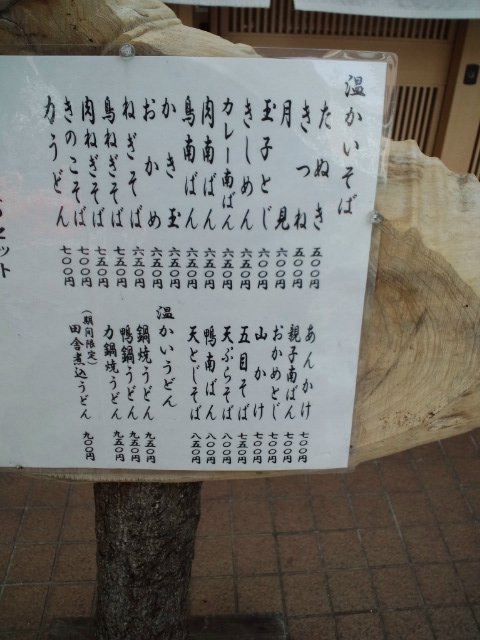 温かいそば
たぬき 五〇〇円
きつね 五〇〇円
月見 六〇〇円
玉子とじ 六〇〇円
きしめん 六〇〇円
カレー南ばん 六五〇円
肉南ばん 六五〇円
鳥南ばん 六五〇円
かき玉 六五〇円
おかめ 六五〇円
ねぎそば 六五〇円
鳥ねぎそば 七五〇円
肉ねぎそば 七〇〇円
きのこそば 七〇〇円
力うどん 七〇〇円
あんかけ 七〇〇円
親子南ばん 七〇〇円
おかめとじ 七〇〇円
山かけ 七〇〇円
五目そば 七五〇円
天ぷらそば 八〇〇円
鴨南ばん 八五〇円
天とじそば 八五〇円
温かいうどん
鍋焼うどん 九五〇円
鴨鍋うどん 九五〇円
力鍋焼うどん 九五〇円
(期間限定)
田舎煮込うどん 九〇〇円
セット